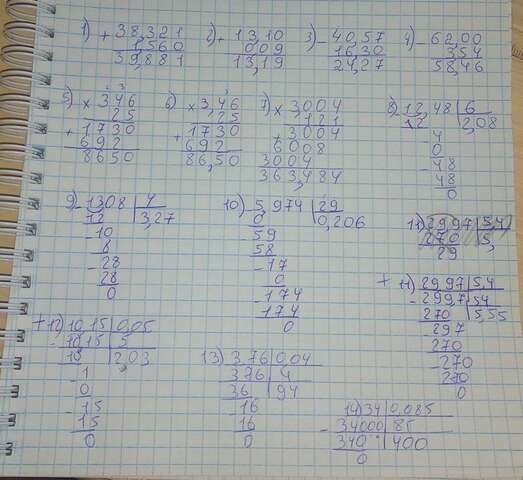 1) + 38,321  2) + 13,10  3) - 40,57  4) - 62,00
1,560  0,09  16,30  3,54
39,881  13,19  24,27  58,46
5) × 346  6) × 3,46  7) × 3,004  8) 12,48 | 6
25  25  121  12 | 2,08
+ 1730  + 1730  + 3004  4
692  692  6008  0
8650  86,50  3004  - 48
363,484  48
0
9) - 1308 | 4  10) - 5,974 | 29  11) 29,97 | 5,4
12 | 3,27  0 | 0,206  270 | 5,
- 10  - 59  29
8  58
- 28  - 17
28  0
0  - 174
174
0
+ 11) 29,97 | 5,4
- 299,7 | 54
270 | 5,55
- 297
270
- 270
270
0
+ 12) 10,15 | 0,05  13) 3,76 | 0,04  14) 34 | 0,085
- 10,15 | 5  376 | 4  - 34000 | 85
10 | 2,03  36 | 94  340 | 400
- 1  - 16  0
0  16
- 15  0
15
0